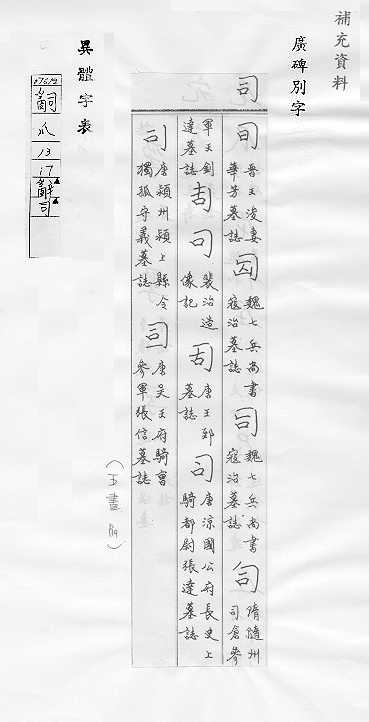 補充資料
廣碑別字
司
晉王浚妻
華芳墓誌
魏七兵尚書
寇治墓誌
司
魏七兵尚書
寇治墓誌
隋隨州
司倉參
達墓誌
裴治造
像記
唐王郢
墓誌
司
唐涼國公府長史上
騎都尉張達墓誌
司
唐潁州潁上縣令
獨孤守義墓誌
唐吳王府騎曹
參軍張信墓誌
(五畫 89)
異體字表
爪
13
17
辭
司